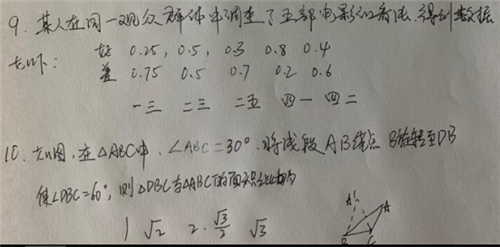 9. 某人在同一观众群体中调查了五部电影的看法,得到数据
如下: 好 0.25, 0.5, 0.3 0.8 0.4
差 0.75 0.5 0.7 0.2 0.6
一三 二三 二五 四一 四二
10. 如图,在△ABC中,∠ABC=30°,将线段AB绕点B旋转至DB
使∠DBC=60°,则△DBC与△ABC的面积之比为
1 √2 2. √3/2 √3
A' A
B C